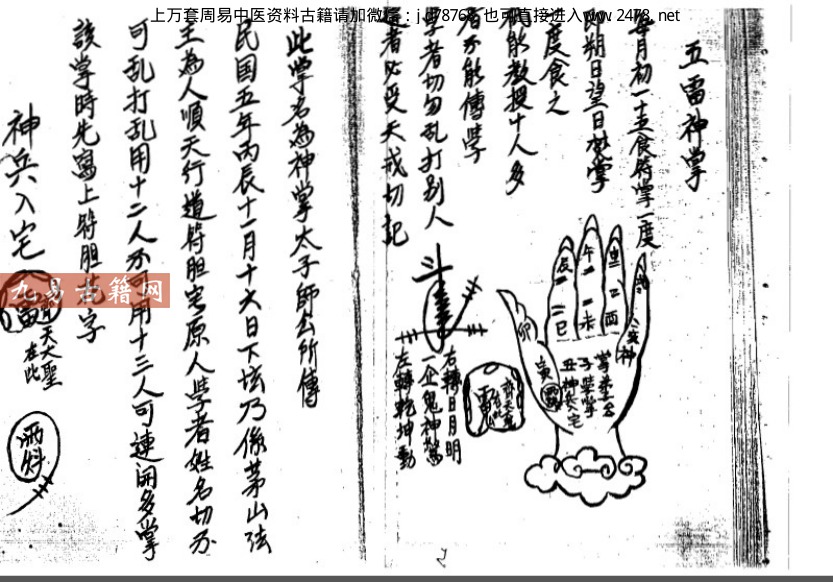 上万套周易中医资料古籍请加微信
也可直接进入www.2478.net
五雷神掌
每月初一十五食符掌一度
即朔日望日焚掌
度食之
能教授十人多
者不能傳学
学者切勿乱打别人
違者必受天戒切記
右轉日月明
一企鬼神驚
左轉乾坤動
齊天大聖在此
雷
戌
申 酉
午 未
辰 巳
卯
寅
丑
子
此掌名為神掌太子師公所傳
民国五年丙辰十一月十六日下坛乃係茅山法
主為人順天行道符胆宅原人学者姓名切不
可乱打乱用十二人不可用十三人可速開多掌
該掌時先寫上符胆
字
神兵入宅
雷
齊天大聖
在此
九易古籍网